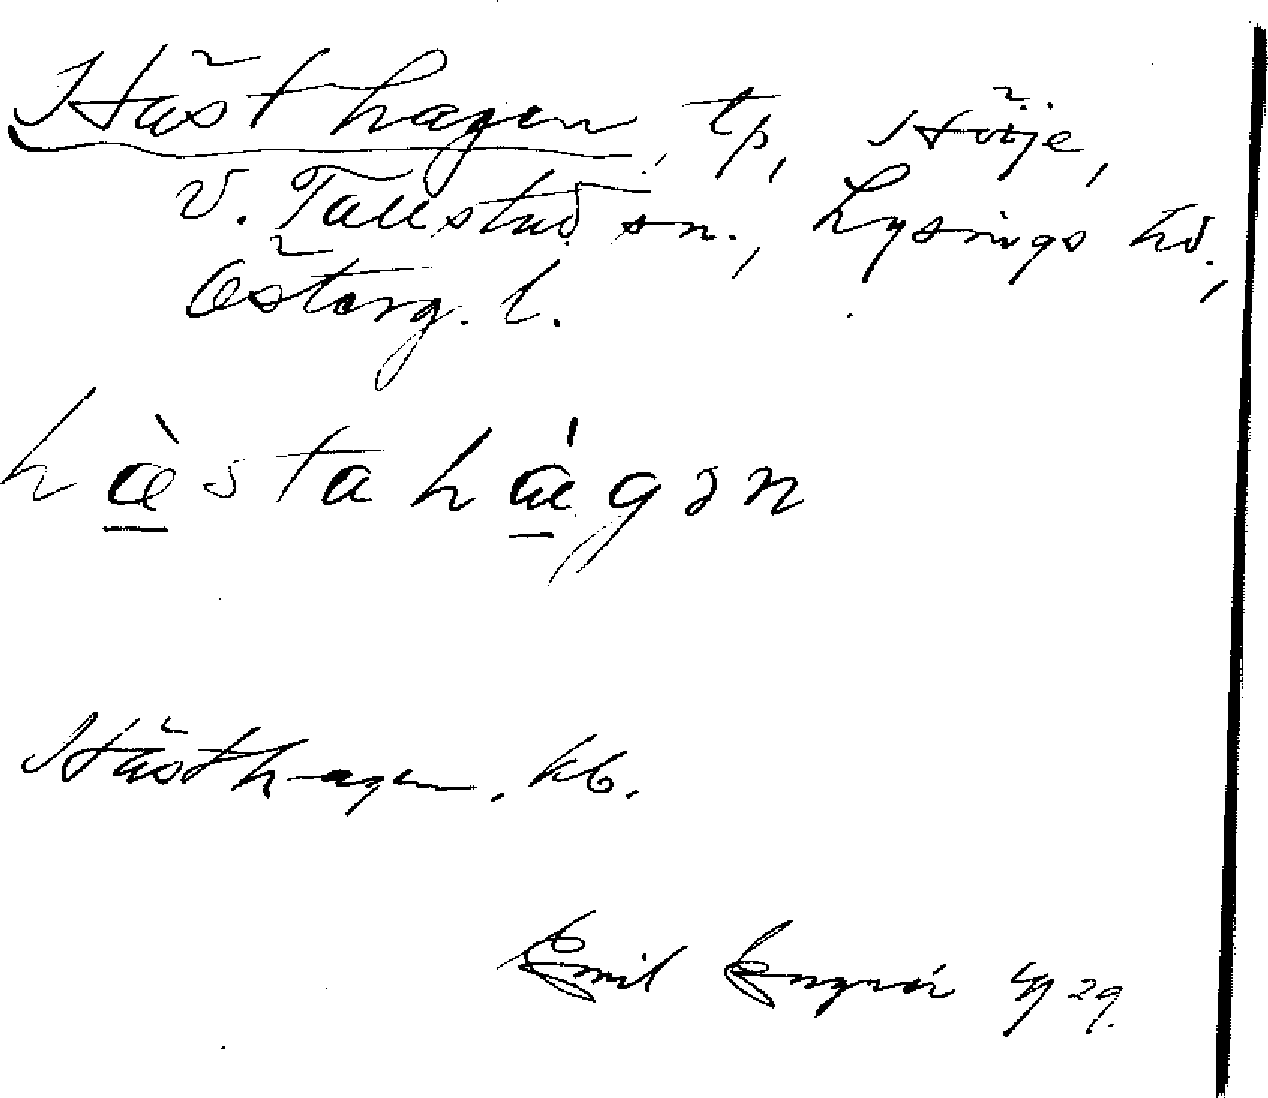 Hästhagen, tp, Höje,
V. Tollstad sn., Lysings hd.,
Österg. l.
hæ̀stahágən
Hästhagen. kb.
Emil 1929.